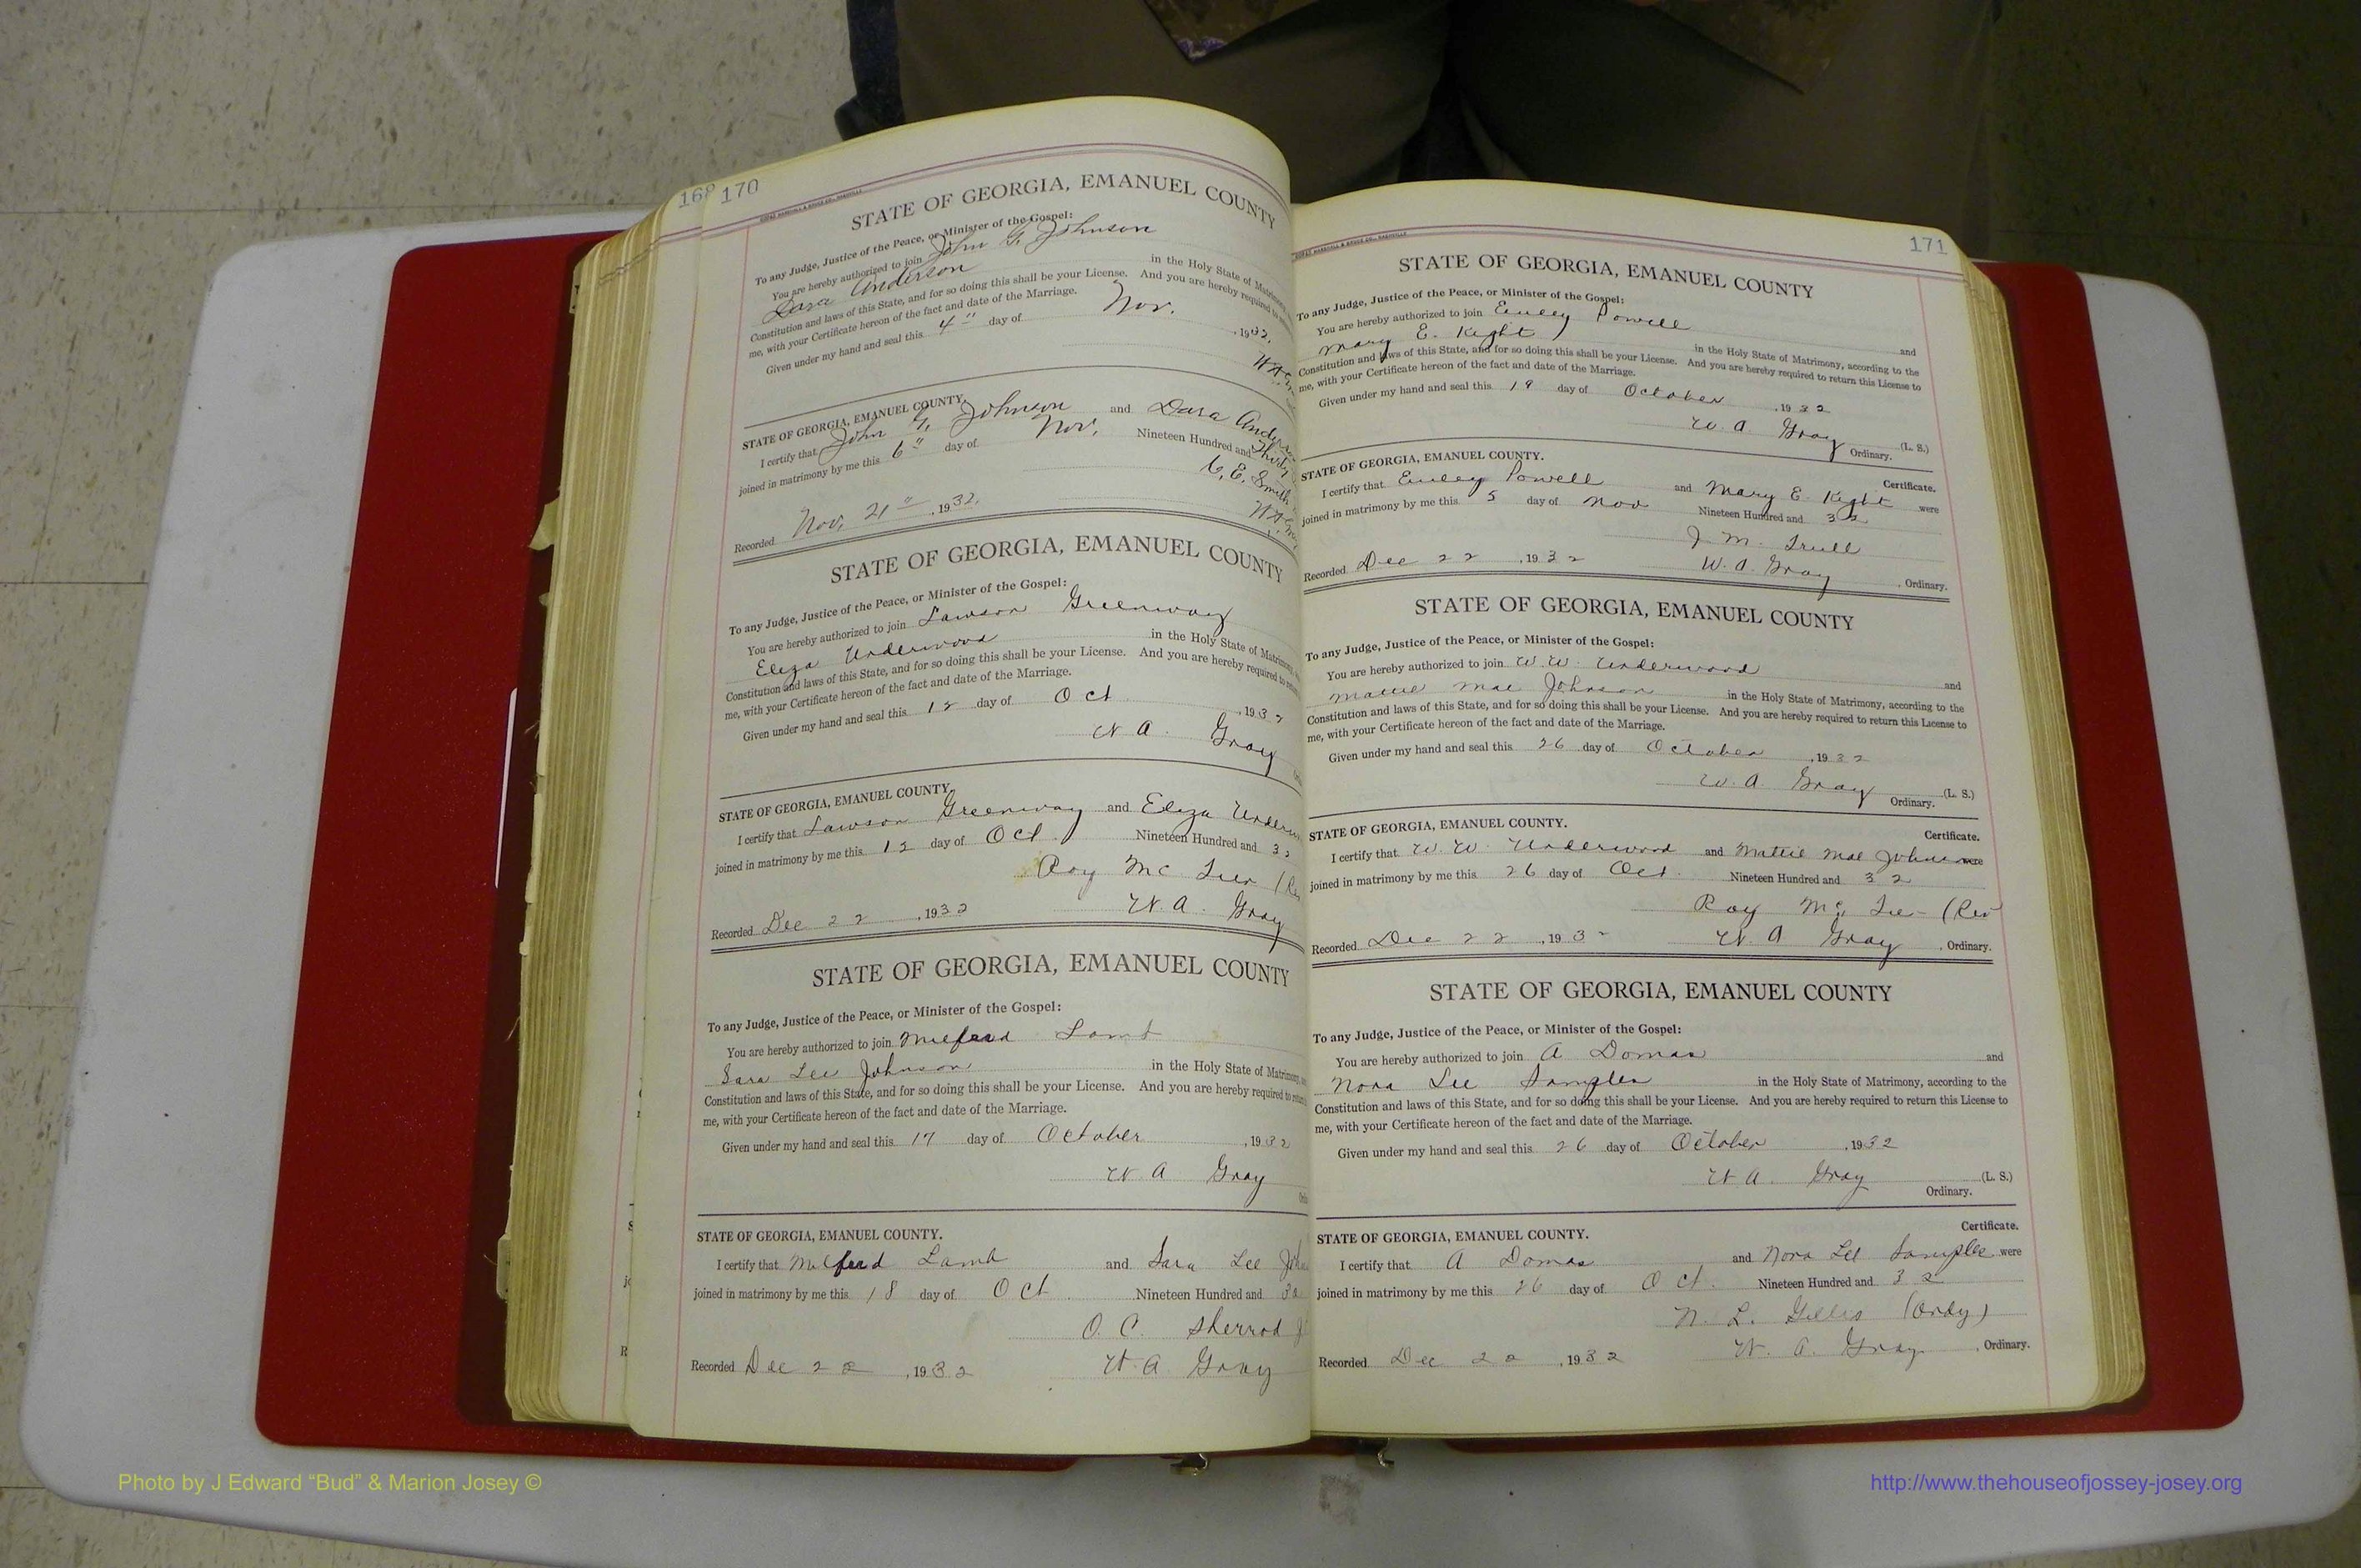 168
170
STATE OF GEORGIA, EMANUEL COUNTY
To any Judge, Justice of the Peace, or Minister of the Gospel:
You are hereby authorized to join John G. Johnson
Dara Anderson in the Holy State of Matrimony,
Constitution and laws of this State, and for so doing this shall be your License. And you are hereby required to
me, with your Certificate hereon of the fact and date of the Marriage.
Given under my hand and seal this 4" day of Nov. , 1932.
STATE OF GEORGIA, EMANUEL COUNTY.
I certify that John G. Johnson and Dara
joined in matrimony by me this 6" day of Nov. Nineteen Hundred and
C. E. Smith
Recorded Nov. 21" , 1932.
STATE OF GEORGIA, EMANUEL COUNTY
To any Judge, Justice of the Peace, or Minister of the Gospel:
You are hereby authorized to join Lawson Greenway
Eliza Underwood in the Holy State of Matrimony,
Constitution and laws of this State, and for so doing this shall be your License. And you are hereby required to
me, with your Certificate hereon of the fact and date of the Marriage.
Given under my hand and seal this 12 day of Oct , 1932
W A. Gray
STATE OF GEORGIA, EMANUEL COUNTY.
I certify that Lawson Greenway and Eliza
joined in matrimony by me this 12 day of Oct. Nineteen Hundred and 32
Roy Mc
W. A. Gray
Recorded Dec 22 , 1932
STATE OF GEORGIA, EMANUEL COUNTY
To any Judge, Justice of the Peace, or Minister of the Gospel:
You are hereby authorized to join Milferd Lamb
Sara Lee Johnson in the Holy State of Matrimony,
Constitution and laws of this State, and for so doing this shall be your License. And you are hereby required to
me, with your Certificate hereon of the fact and date of the Marriage.
Given under my hand and seal this 17 day of October , 1932
W A Gray
STATE OF GEORGIA, EMANUEL COUNTY.
I certify that Milferd Lamb and Sara Lee
joined in matrimony by me this 18 day of Oct. Nineteen Hundred and 32
O. C. Sherrod
Recorded Dec 22 , 1932 W. A Gray
171
STATE OF GEORGIA, EMANUEL COUNTY
To any Judge, Justice of the Peace, or Minister of the Gospel:
You are hereby authorized to join Euley Powell and
Mary E. Kight in the Holy State of Matrimony, according to the
Constitution and laws of this State, and for so doing this shall be your License. And you are hereby required to return this License to
me, with your Certificate hereon of the fact and date of the Marriage.
Given under my hand and seal this 19 day of October , 1932
W. A Gray (L. S.)
Ordinary.
STATE OF GEORGIA, EMANUEL COUNTY. Certificate.
I certify that Euley Powell and Mary E. Kight were
joined in matrimony by me this 5 day of Nov Nineteen Hundred and 32
J. M. Trull
Recorded Dec 22 , 1932 W. A. Gray , Ordinary.
STATE OF GEORGIA, EMANUEL COUNTY
To any Judge, Justice of the Peace, or Minister of the Gospel:
You are hereby authorized to join W. W. Underwood and
Mattie Mae Johnson in the Holy State of Matrimony, according to the
Constitution and laws of this State, and for so doing this shall be your License. And you are hereby required to return this License to
me, with your Certificate hereon of the fact and date of the Marriage.
Given under my hand and seal this 26 day of October , 1932
W. A Gray (L. S.)
Ordinary.
STATE OF GEORGIA, EMANUEL COUNTY. Certificate.
I certify that W. W. Underwood and Mattie Mae Johnson were
joined in matrimony by me this 26 day of Oct. Nineteen Hundred and 32
Roy Mc (Rev
Recorded Dec 22 , 193 W. A Gray , Ordinary.
STATE OF GEORGIA, EMANUEL COUNTY
To any Judge, Justice of the Peace, or Minister of the Gospel:
You are hereby authorized to join A Domas and
Nora Lee Samples in the Holy State of Matrimony, according to the
Constitution and laws of this State, and for so doing this shall be your License. And you are hereby required to return this License to
me, with your Certificate hereon of the fact and date of the Marriage.
Given under my hand and seal this 26 day of October , 1932
W A. Gray (L. S.)
Ordinary.
STATE OF GEORGIA, EMANUEL COUNTY. Certificate.
I certify that A Domas and Nora Lee Samples were
joined in matrimony by me this 26 day of Oct. Nineteen Hundred and 32
N. L. Gillis (Ordy)
Recorded Dec 22 , 1932 W. A. Gray , Ordinary.
Photo by J Edward “Bud” & Marion Josey ©
http://www.thehouseofjossey-josey.org